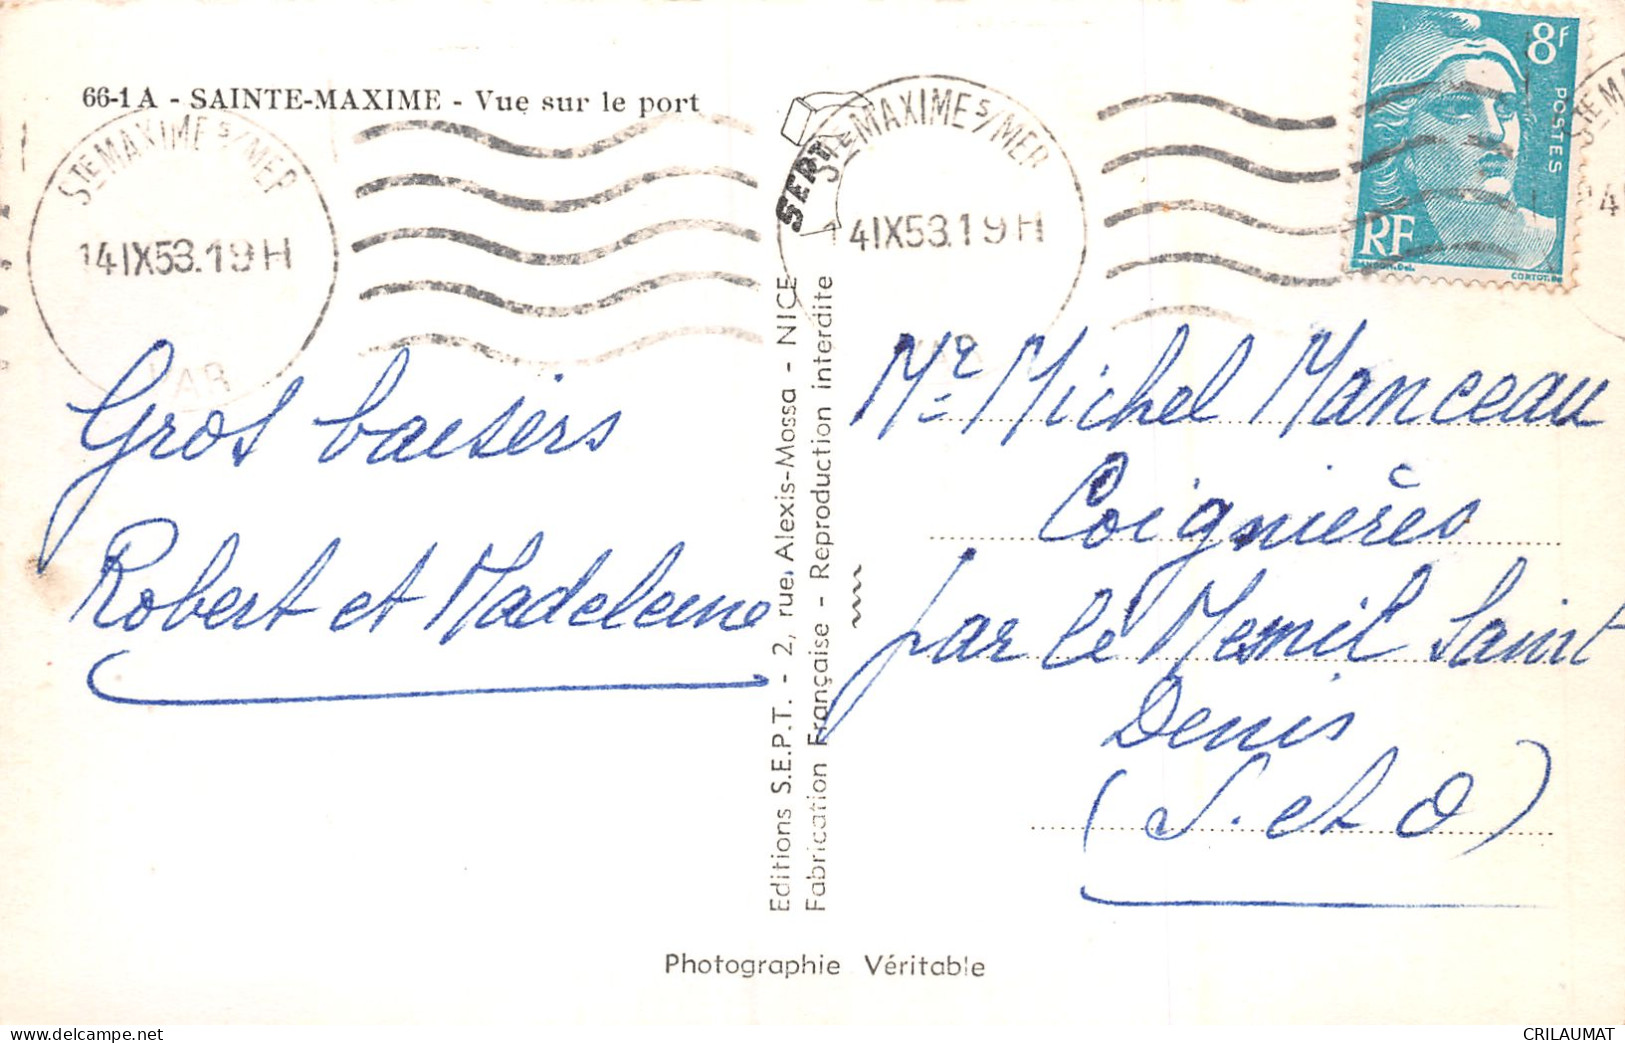 66-1 A - SAINTE-MAXIME - Vue sur le port
STE MAXIME S/MER
14 IX 53. 19 H
VAR
STE MAXIME S/MER
14 IX 53. 19 H
VAR
8F
POSTES
RF
CORTOT.
SEPT
Gros baisers
Robert et Madeleine
Editions S.E.P.T. - 2, rue Alexis-Mossa - NICE
Fabrication Française - Reproduction interdite
Mr Michel Manceau
Coignières
par le Mesnil Saint
Denis
(S. et O)
Photographie Véritable
delcampe.net
CRILAUMAT